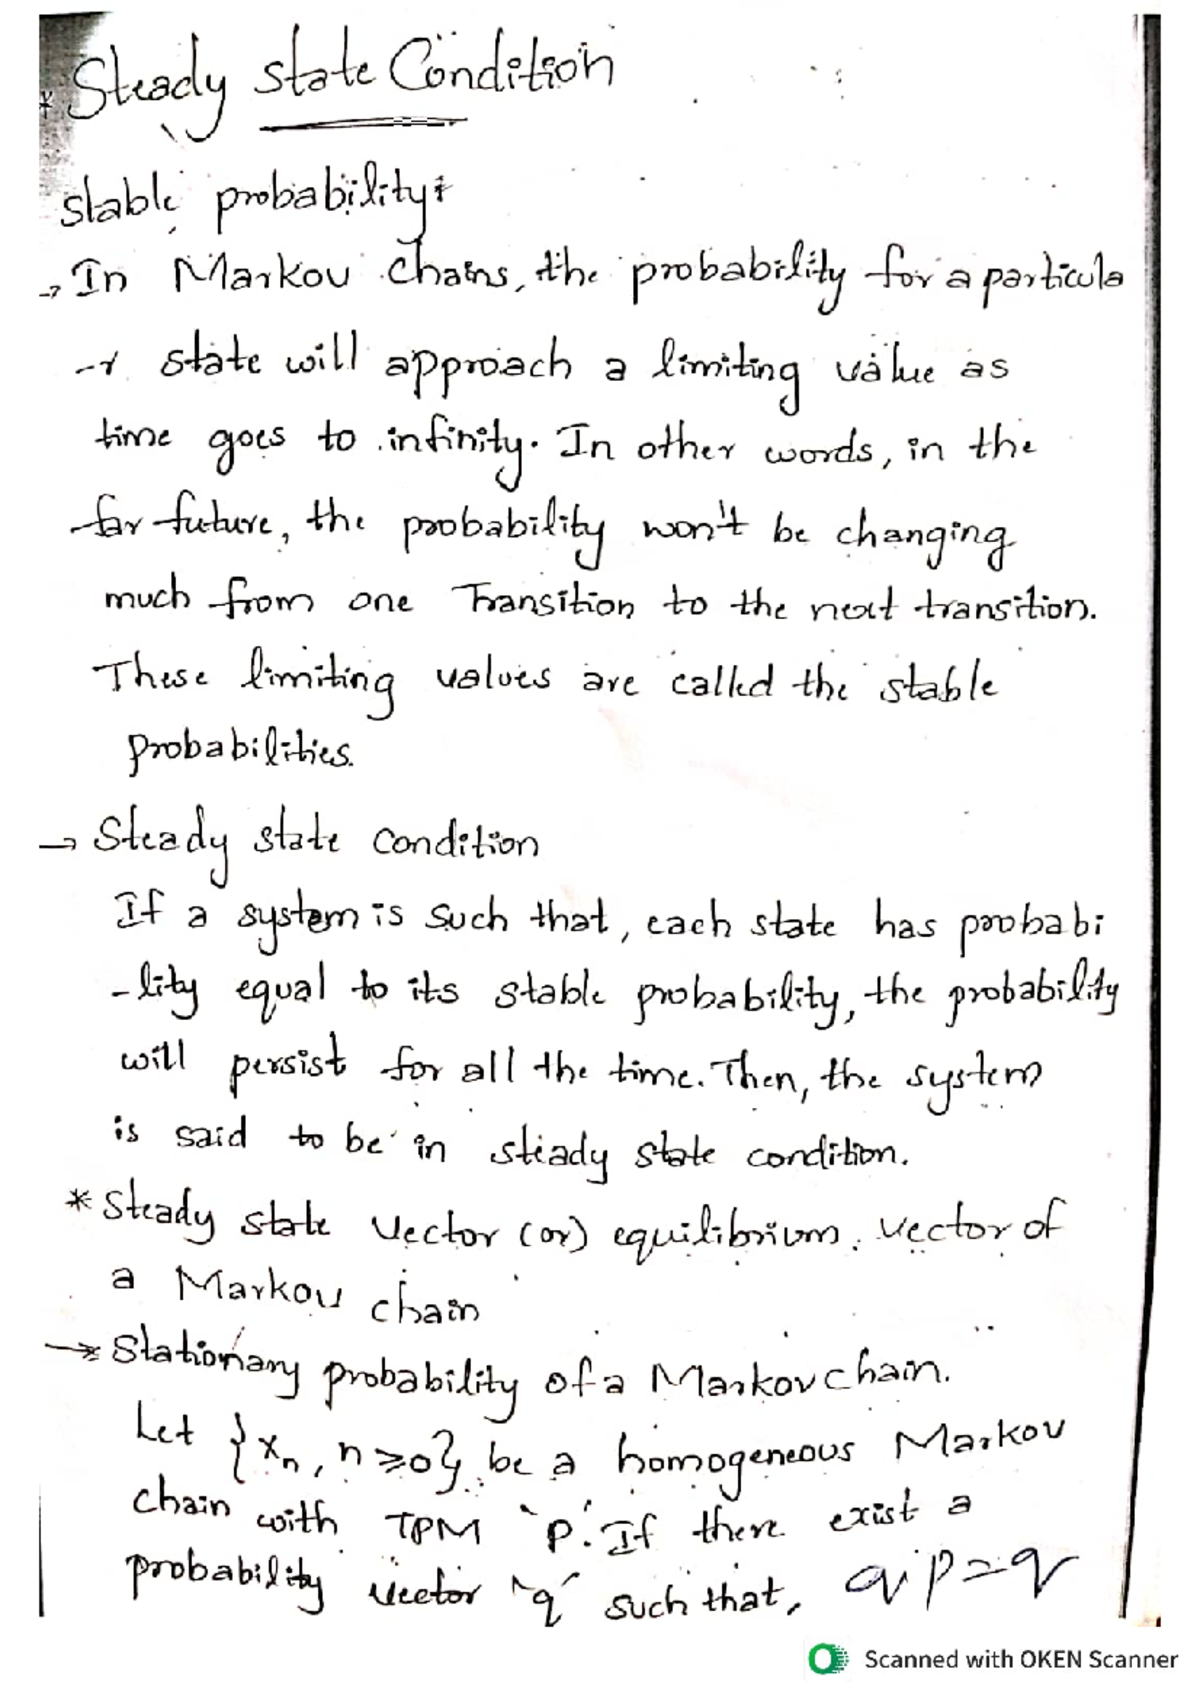 * Steady state Condition
stable probability:
→ In Markov chains, the probability for a particula
-r state will approach a limiting value as
time goes to infinity. In other words, in the
far future, the probability won't be changing
much from one Transition to the next transition.
These limiting values are called the stable
probabilities.
→ Steady state condition
If a system is such that, each state has probabi
-lity equal to its stable probability, the probability
will persist for all the time. Then, the system
is said to be in steady state condition.
* Steady state vector (or) equilibrium vector of
a Markov chain
→* Stationary probability of a Markov chain.
Let {xn, n ≥ 0}, be a homogeneous Markov
chain with TPM `P'. If there exist a
probability vector `q' such that, q.p = q
Scanned with OKEN Scanner